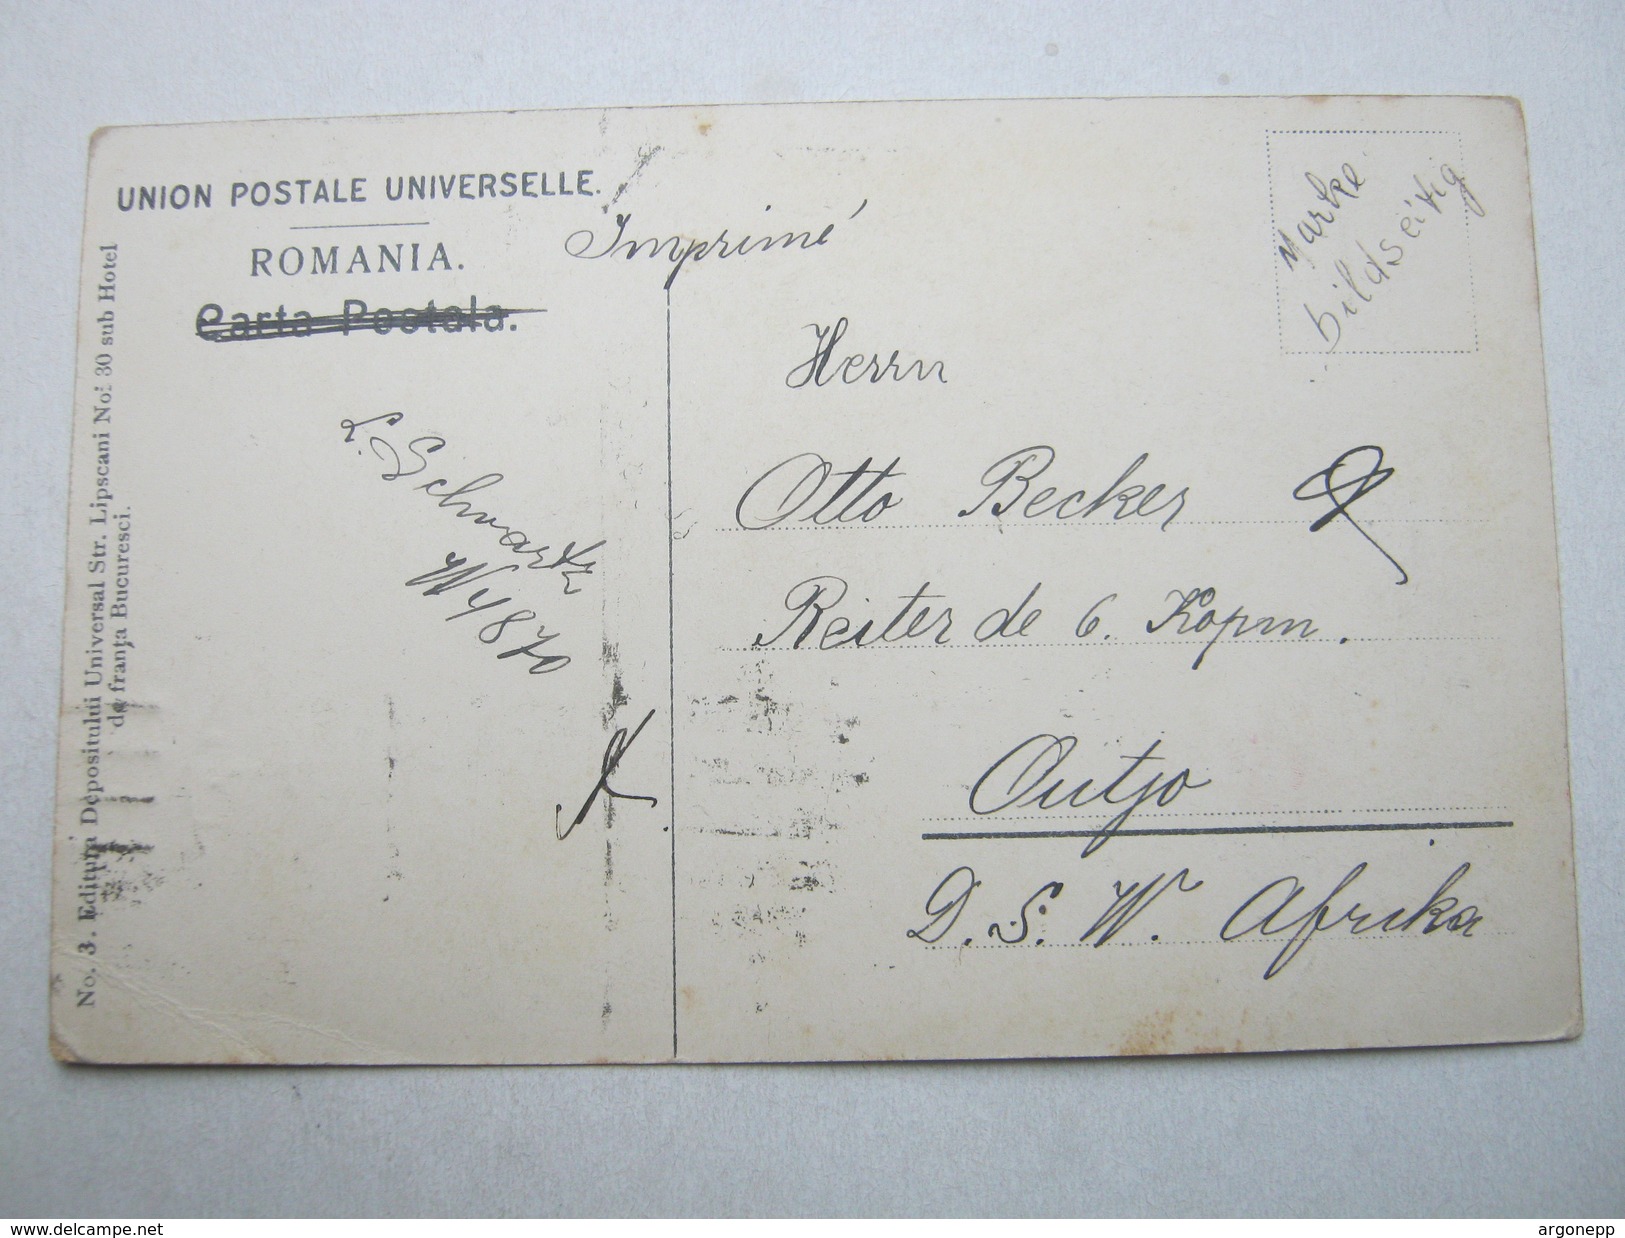 UNION POSTALE UNIVERSELLE.
ROMANIA.
Carta Postala.
Imprimé
Marke
bildseitig
Herrn
Otto Becker
Reiter de 6. Kopm.
Outjo
D. S. W. Afrika
L. Schwartz
W 4870
No. 3. Editura Depositului Universal Str. Lipscani No: 30 sub Hotel
de franța Bucuresci.
www.delcampe.net
argonepp